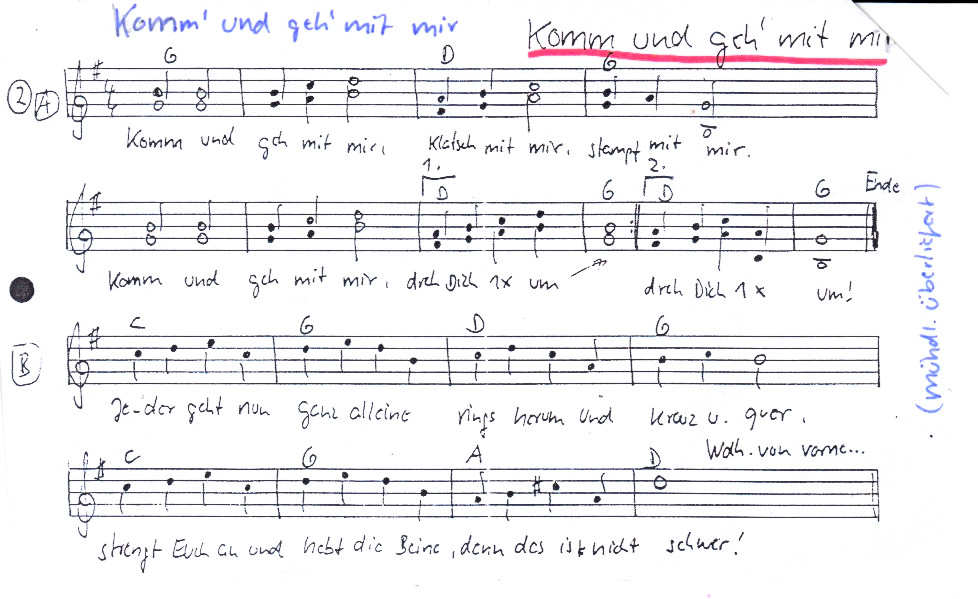 Komm' und geh' mit mir
Komm und geh' mit mir
G D G
2 A
4
4
Komm und geh mit mir, Klatsch mit mir, stampf mit mir.
1. 2.
D G D G Ende
Komm und geh mit mir, dreh Dich 1x um dreh Dich 1x um!
C G D G
B
Je-der geht nun ganz alleine rings herum und kreuz u. quer.
Wdh. von vorne...
C G A D
strengt Euch an und hebt die Beine, denn das ist nicht schwer!
(mündl. überliefert)